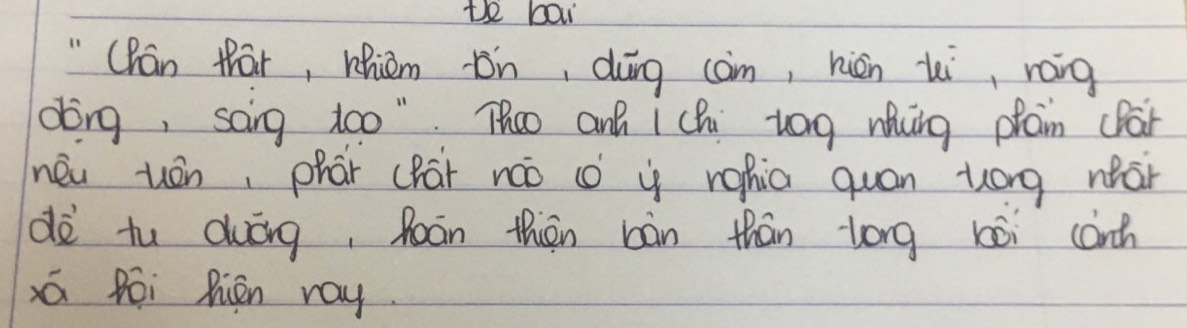 Đề bài
"Chân thật, khiêm tốn, dũng cảm, kiên trì, năng
động, sáng tạo". Theo anh / chị trong những phẩm chất
nêu trên, phẩt chất nào có ý nghĩa quan trọng nhất
để tu dưỡng, hoàn thiện bản thân trong bối cảnh
xã hội hiện nay.